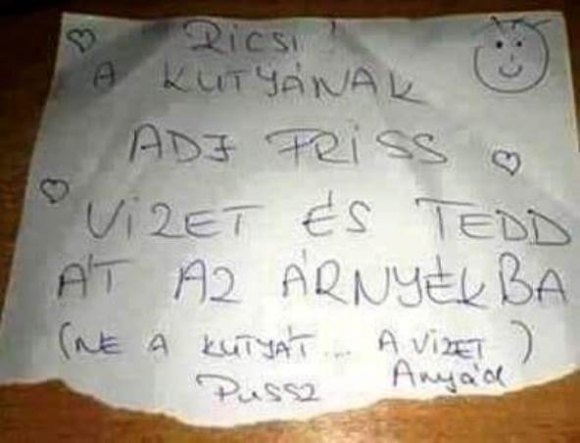 Ricsi!
A KUTYÁNAK
ADJ FRISS
VIZET ÉS TEDD
ÁT AZ ÁRNYÉKBA
(NE A KUTYÁT... A VIZET)
Pussz Anyád